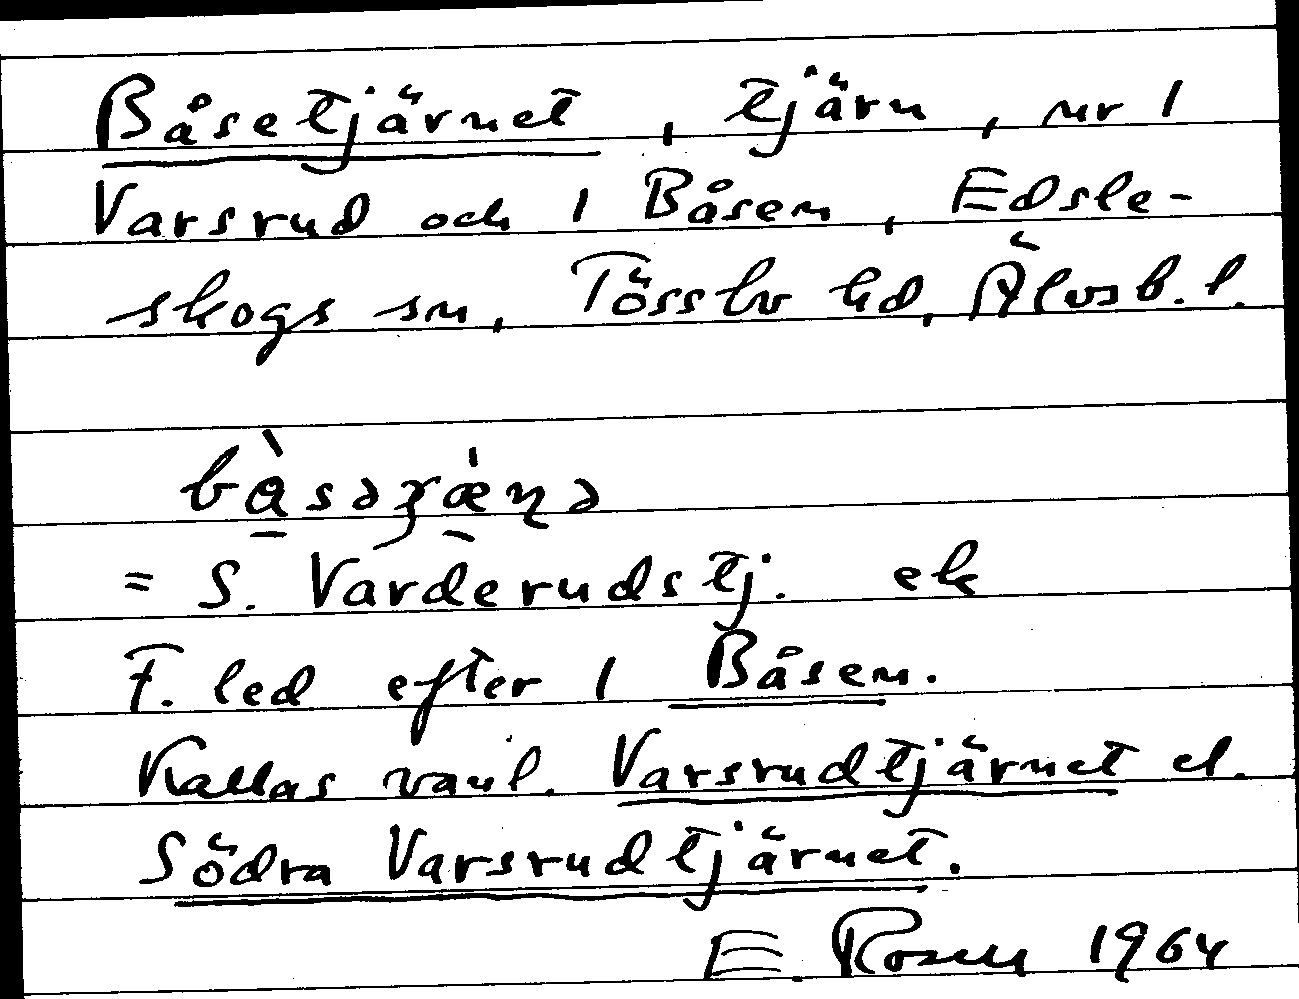 Båsetjärnet, tjärn, nr 1
Varsrud och 1 Båsen, Edsle-
skogs sn, Tössbo hd, Älvsb. l.
bàsəɼæ̀ɳə
= S. Varderudstj. ek
F. led efter 1 Båsen.
Kallas vanl. Varsrudtjärnet el.
Södra Varsrudtjärnet.
E. Rosen 1964